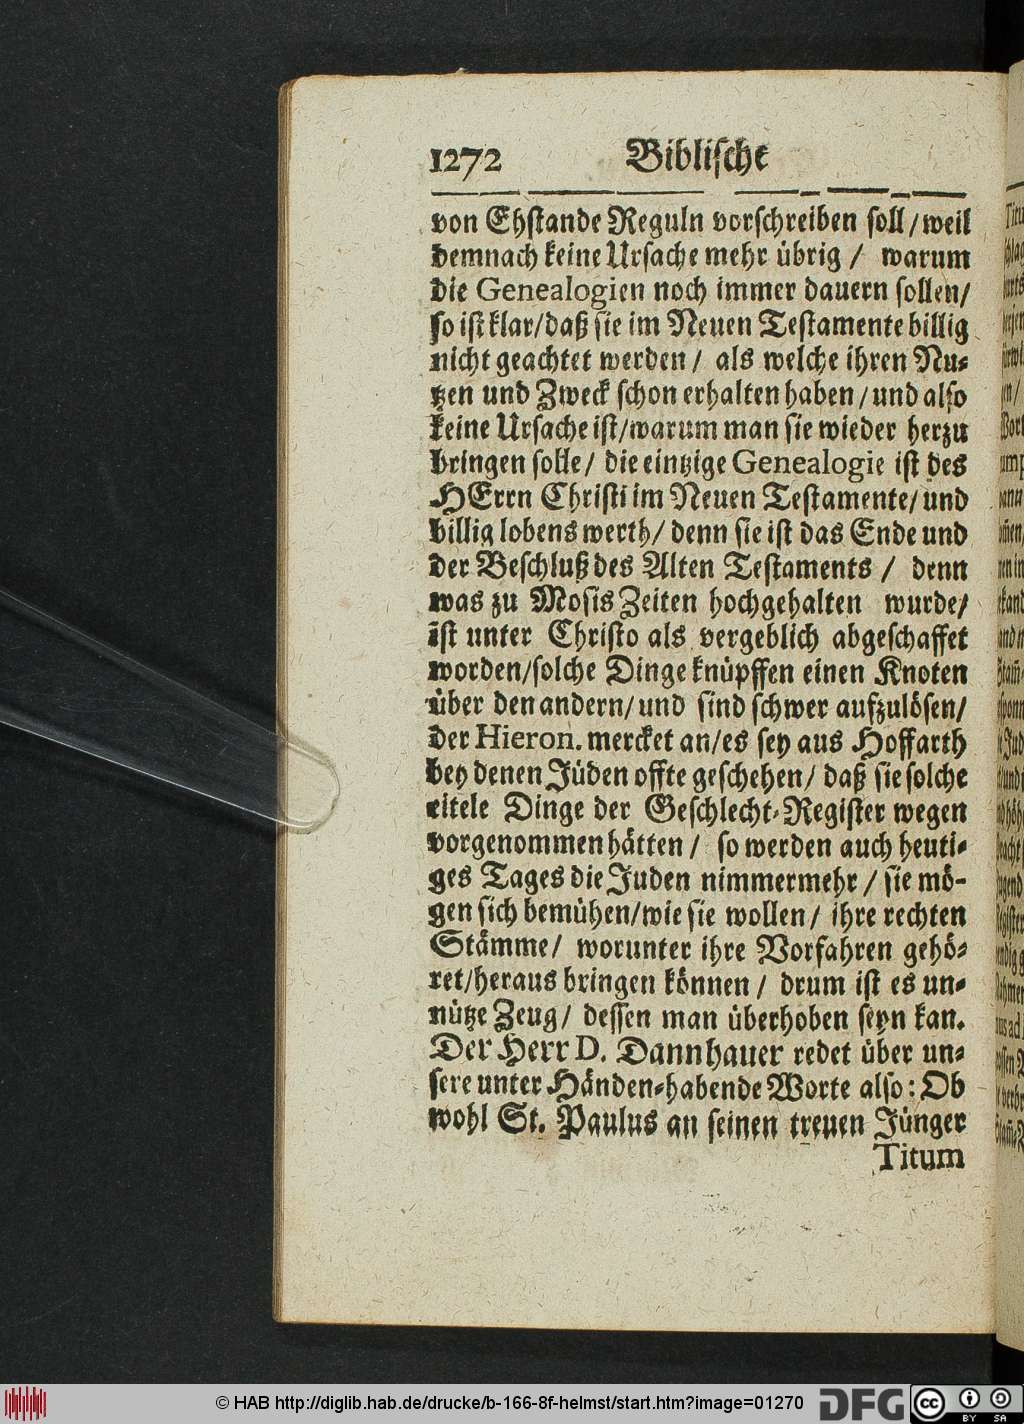 1272 Biblische
von Ehstande Reguln vorschreiben soll/ weil
demnach keine Ursache mehr übrig / warum
die Genealogien noch immer dauern sollen/
so ist klar/ daß sie im Neuen Testamente billig
nicht geachtet werden / als welche ihren Nu-
tzen und Zweck schon erhalten haben / und also
keine Ursache ist/ warum man sie wieder herzu
bringen solle/ die eintzige Genealogie ist des
HErrn Christi im Neuen Testamente/ und
billig lobens werth/ denn sie ist das Ende und
der Beschluß des Alten Testaments / denn
was zu Mosis Zeiten hochgehalten wurde/
ist unter Christo als vergeblich abgeschaffet
worden/ solche Dinge knüpffen einen Knoten
über den andern/ und sind schwer aufzulösen/
der Hieron. mercket an/ es sey aus Hoffarth
bey denen Jüden offte geschehen/ daß sie solche
eitele Dinge der Geschlecht-Register wegen
vorgenommen hätten / so werden auch heuti-
ges Tages die Juden nimmermehr / sie mö-
gen sich bemühen/ wie sie wollen/ ihre rechten
Stämme/ worunter ihre Vorfahren gehö-
ret/ heraus bringen können / drum ist es un-
nütze Zeug/ dessen man überhoben seyn kan.
Der Herr D. Dannhauer redet über un-
sere unter Händen-habende Worte also: Ob
wohl St. Paulus an seinen treuen Jünger
Titum
© HAB http://diglib.hab.de/drucke/b-166-8f-helmst/start.htm?image=01270
DFG
cc BY SA